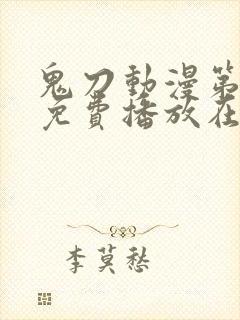 鬼刀動漫第
免費播放在
李莫愁